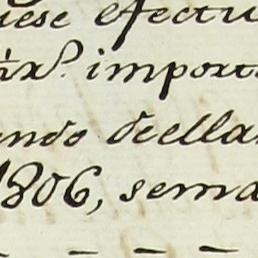 uese efectu
import
endo deella
1806, sema